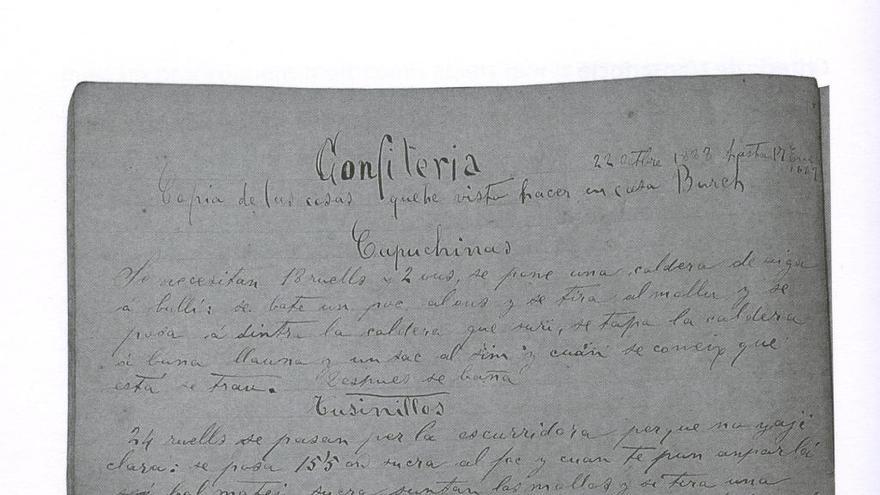 Confiteria
22 octbre 1888 hasta 17
Copia de las cosas que he visto hacer en casa Burch
Capuchinas
Se necesitan 18 ruells y 2 ous, se pone una caldera de aiga
á bulli: se bate un poc al ous y se tira al mallu y se
posa á dintra la caldera que suri, se tapa la caldera
á buna llauna y un sac al sim y cuan se coneix que
está se trau. Despues se baña
Tusinillos
24 ruells se pasan per la escurridora per que no y aji
clara: se posa 15'5 on sucra al foc y cuan te pun
bal matej sucra juntan las mollas y se tira una